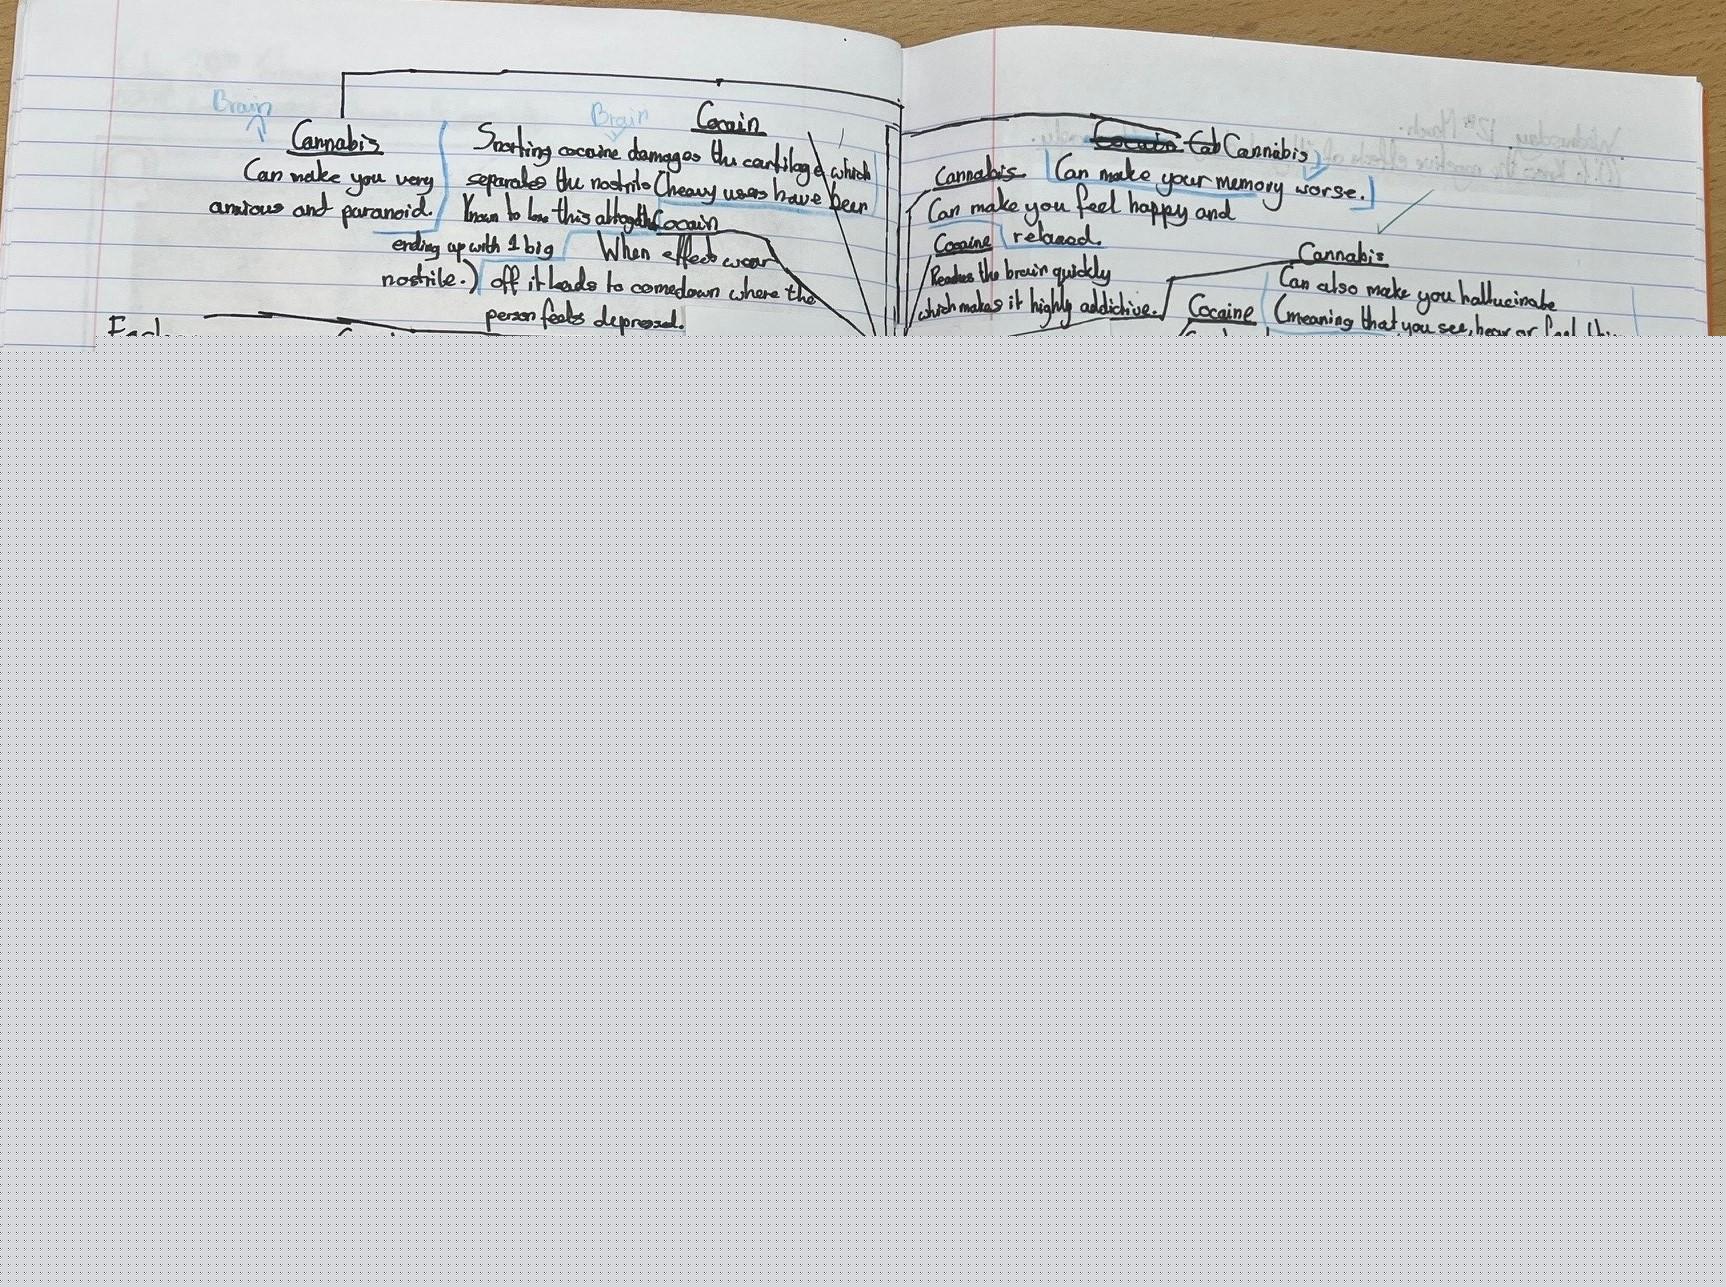 Brain
Cannabis
Can make you very
anxious and paranoid.
Brain
Cocain
Snorting cocaine damages the cartilage which
separates the nostrils (heavy users have been
known to lose this altogether
ending up with 1 big
nostrile.)
Cocain
When effects wear
off it leads to comedown where the
person feels depressed.
Cannabis
Can make your memory worse.
Cannabis
Can make you feel happy and
relaxed.
Cocaine
Reaches the brain quickly
which makes it highly addictive.
Cannabis
Can also make you hallucinate
(meaning that you see, hear or feel
Cocaine